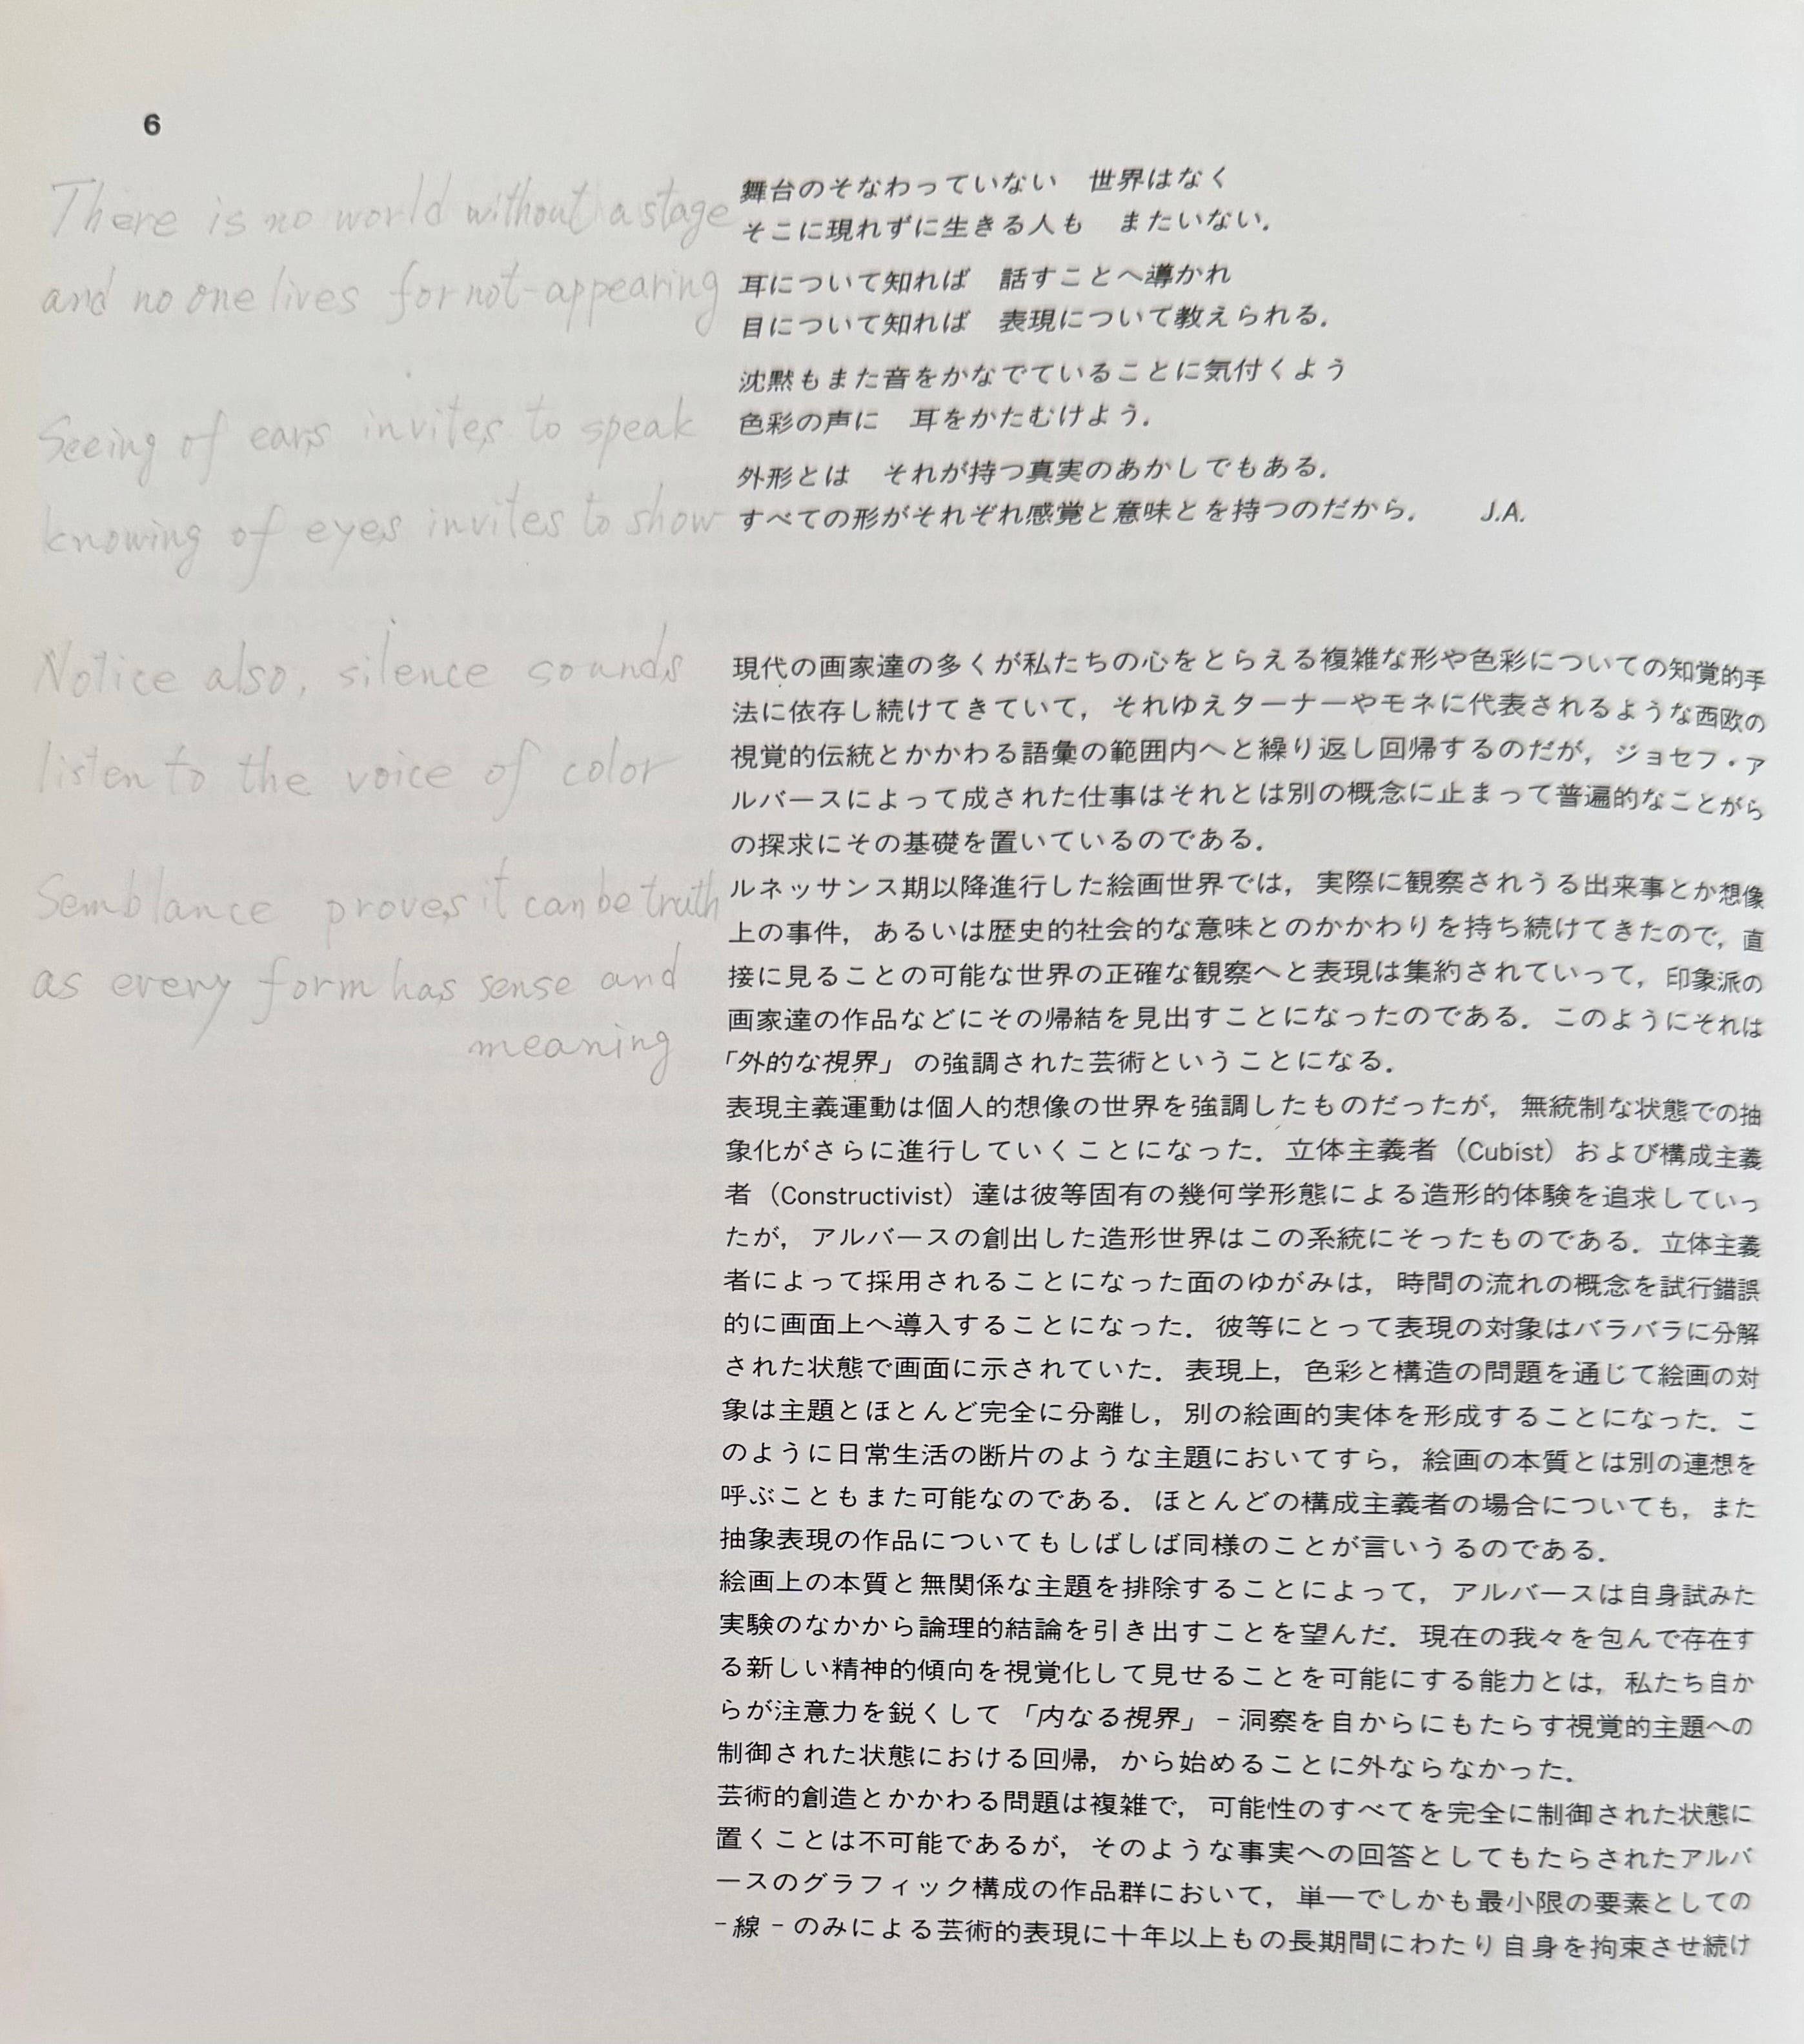 6
There is no world without a stage
and no one lives for not-appearing
Seeing of ears invites to speak
knowing of eyes invites to show
Notice also, silence sounds
listen to the voice of color
Semblance proves it can be truth
as every form has sense and
meaning
舞台のそなわっていない　世界はなく
そこに現れずに生きる人も　またいない．
耳について知れば　話すことへ導かれ
目について知れば　表現について教えられる．
沈黙もまた音をかなでていることに気付くよう
色彩の声に　耳をかたむけよう．
外形とは　それが持つ真実のあかしでもある．
すべての形がそれぞれ感覚と意味とを持つのだから．　J.A.
現代の画家達の多くが私たちの心をとらえる複雑な形や色彩についての知覚的手
法に依存し続けてきていて，それゆえターナーやモネに代表されるような西欧の
視覚的伝統とかかわる語彙の範囲内へと繰り返し回帰するのだが，ジョセフ・ア
ルバースによって成された仕事はそれとは別の概念に止まって普遍的なことがら
の探求にその基礎を置いているのである．
ルネッサンス期以降進行した絵画世界では，実際に観察されうる出来事とか想像
上の事件，あるいは歴史的社会的な意味とのかかわりを持ち続けてきたので，直
接に見ることの可能な世界の正確な観察へと表現は集約されていって，印象派の
画家達の作品などにその帰結を見出すことになったのである．このようにそれは
「外的な視界」の強調された芸術ということになる．
表現主義運動は個人的想像の世界を強調したものだったが，無統制な状態での抽
象化がさらに進行していくことになった．立体主義者（Cubist）および構成主義
者（Constructivist）達は彼等固有の幾何学形態による造形的体験を追求していっ
たが，アルバースの創出した造形世界はこの系統にそったものである．立体主義
者によって採用されることになった面のゆがみは，時間の流れの概念を試行錯誤
的に画面上へ導入することになった．彼等にとって表現の対象はバラバラに分解
された状態で画面に示されていた．表現上，色彩と構造の問題を通じて絵画の対
象は主題とほとんど完全に分離し，別の絵画的実体を形成することになった．こ
のように日常生活の断片のような主題においてすら，絵画の本質とは別の連想を
呼ぶこともまた可能なのである．ほとんどの構成主義者の場合についても，また
抽象表現の作品についてもしばしば同様のことが言いうるのである．
絵画上の本質と無関係な主題を排除することによって，アルバースは自身試みた
実験のなかから論理的結論を引き出すことを望んだ．現在の我々を包んで存在す
る新しい精神的傾向を視覚化して見せることを可能にする能力とは，私たち自か
らが注意力を鋭くして「内なる視界」－洞察を自からにもたらす視覚的主題への
制御された状態における回帰，から始めることに外ならなかった．
芸術的創造とかかわる問題は複雑で，可能性のすべてを完全に制御された状態に
置くことは不可能であるが，そのような事実への回答としてもたらされたアルバ
ースのグラフィック構成の作品群において，単一でしかも最小限の要素としての
－線－のみによる芸術的表現に十年以上もの長期間にわたり自身を拘束させ続け